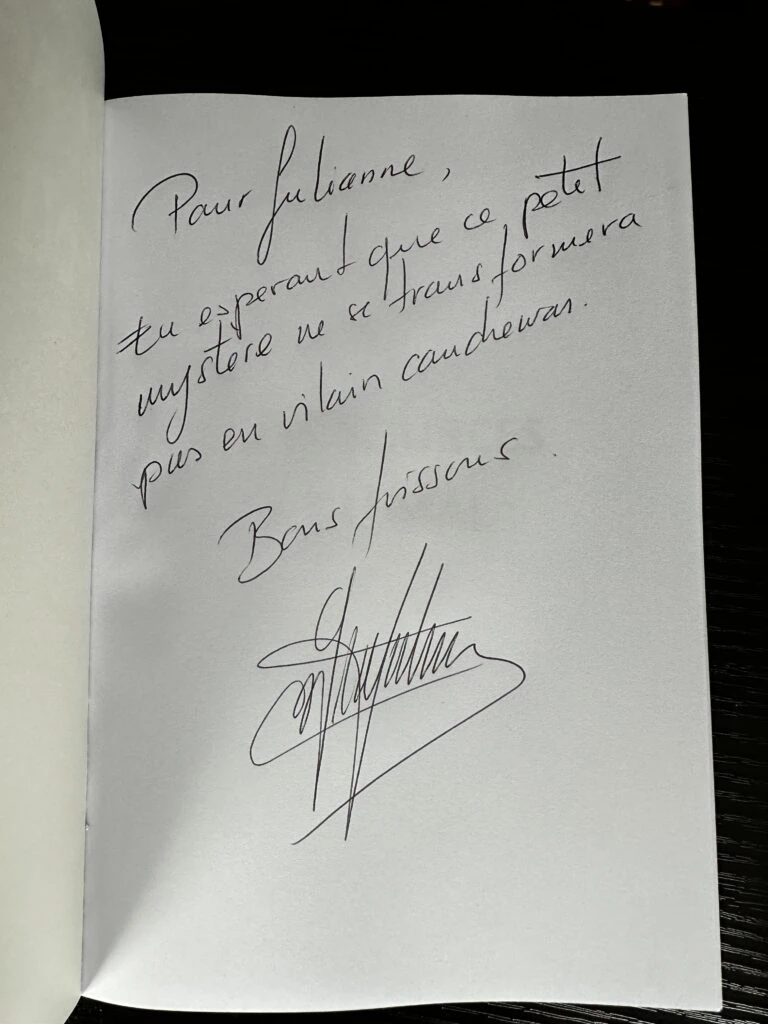 Pour Julianne,
En esperant que ce petit
mystère ne se transformera
pas en vilain cauchemar.
Bons frissons.